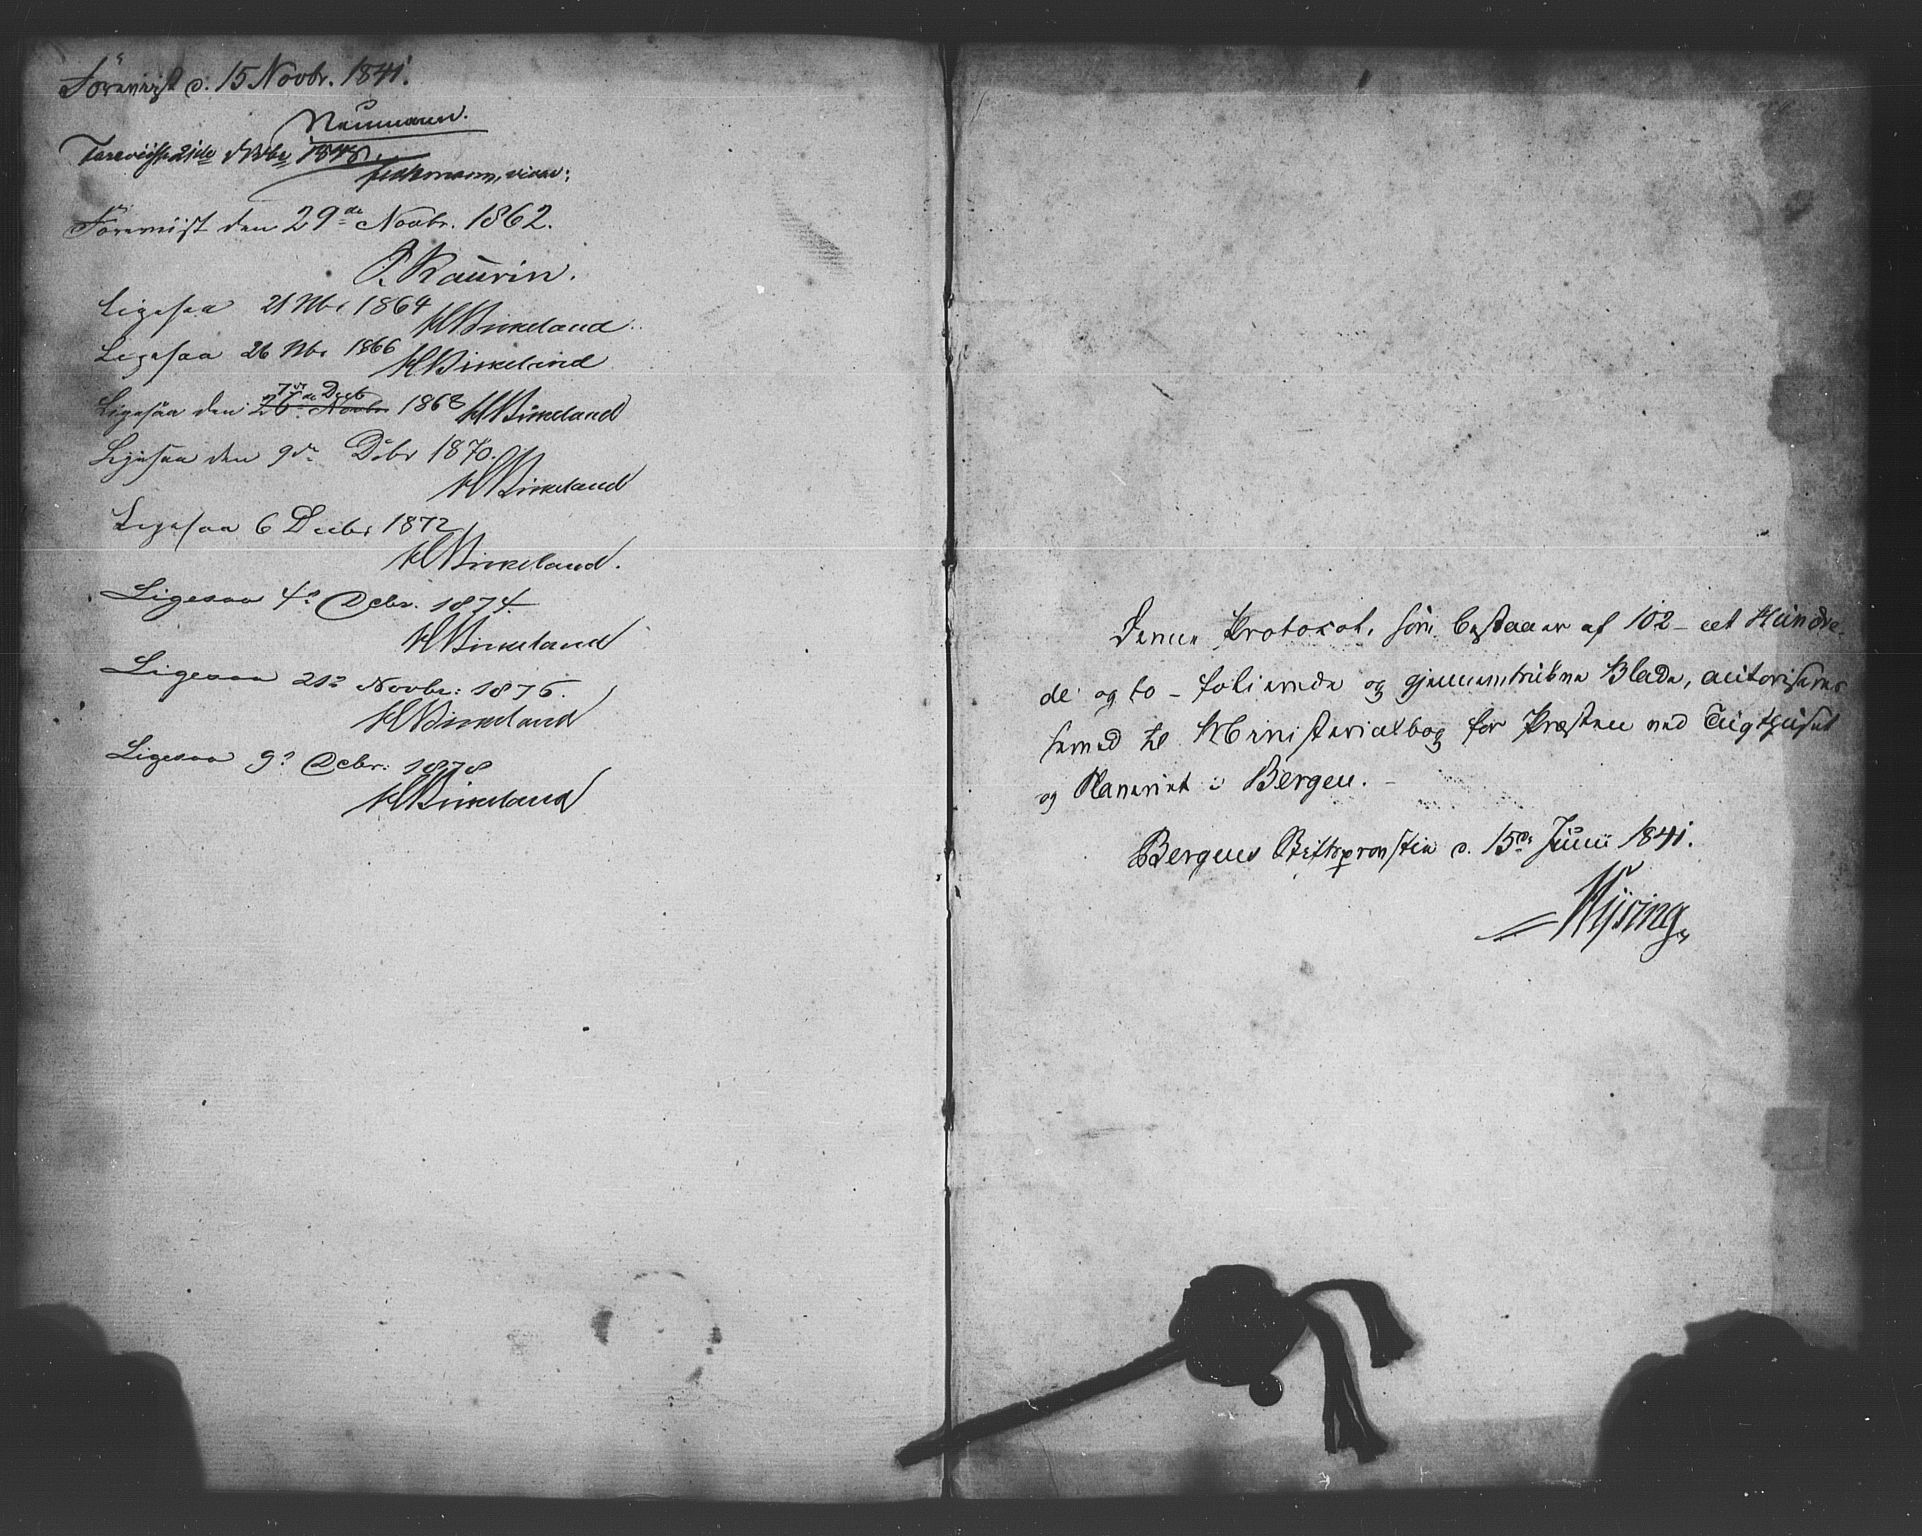 Foreviist d. 15 Novbr. 1841.
Neumann.
Foreviist 21de Novbr 1848.
Foreviist den 29de Novbr. 1862.
P. Kaurin.
Ligesaa 21 Nbr 1864 H Birkeland
Ligesaa 26 Nbr 1866 H Birkeland
7de Decb
Ligesaa den 26de Novbr 1868 H Birkeland
Ligesaa den 9de Dcbr 1870.
H Birkeland
Ligesaa 6 Decbr 1872
H Birkeland.
Ligesaa 4de Dcbr. 1874.
H Birkeland
Ligesaa 21de Novbr: 1876.
H Birkeland
Ligesaa 9de Dcbr: 1878
H Birkeland
Denne Protokol, som bestaaer af 102 - eet Hundre-
de og to - folierede og gjennemtrukne Blade, autoriseres
herved til Ministerialbog for Præsten ved Tugthuset
og Slaveriet i Bergen. -
Bergens Stiftsprovstie d. 15de Junii 1841.